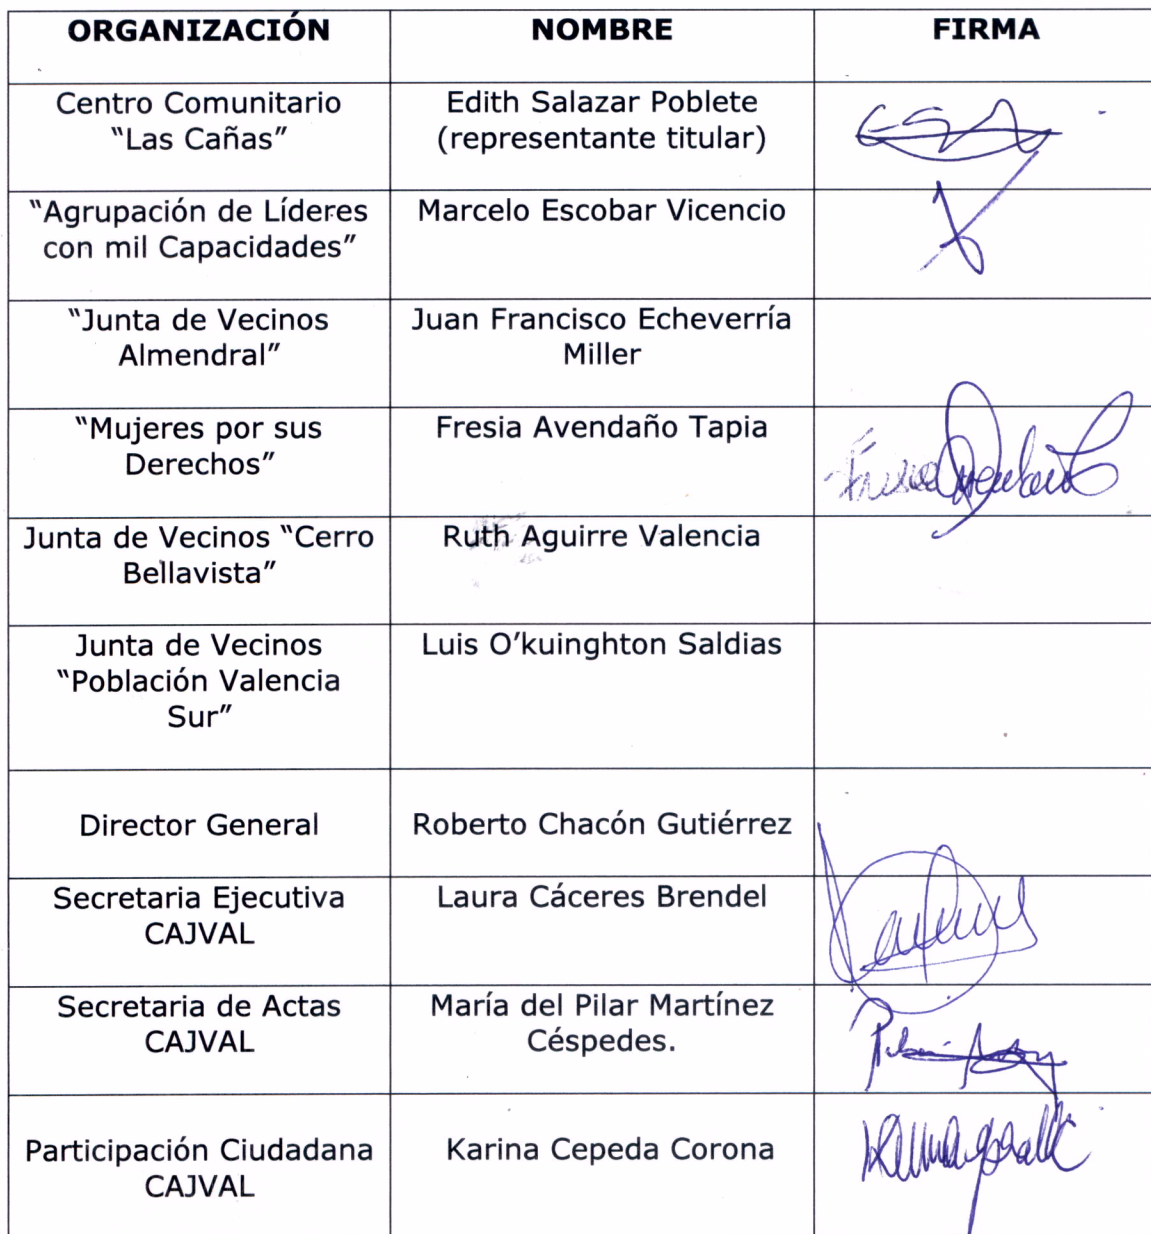 ORGANIZACIÓN NOMBRE FIRMA
Centro Comunitario
"Las Cañas"
Edith Salazar Poblete
(representante titular)
"Agrupación de Líderes
con mil Capacidades"
Marcelo Escobar Vicencio
"Junta de Vecinos
Almendral"
Juan Francisco Echeverría
Miller
"Mujeres por sus
Derechos"
Fresia Avendaño Tapia
Junta de Vecinos "Cerro
Bellavista"
Ruth Aguirre Valencia
Junta de Vecinos
"Población Valencia
Sur"
Luis O'kuinghton Saldias
Director General
Roberto Chacón Gutiérrez
Secretaria Ejecutiva
CAJVAL
Laura Cáceres Brendel
Secretaria de Actas
CAJVAL
María del Pilar Martínez
Céspedes.
Participación Ciudadana
CAJVAL
Karina Cepeda Corona